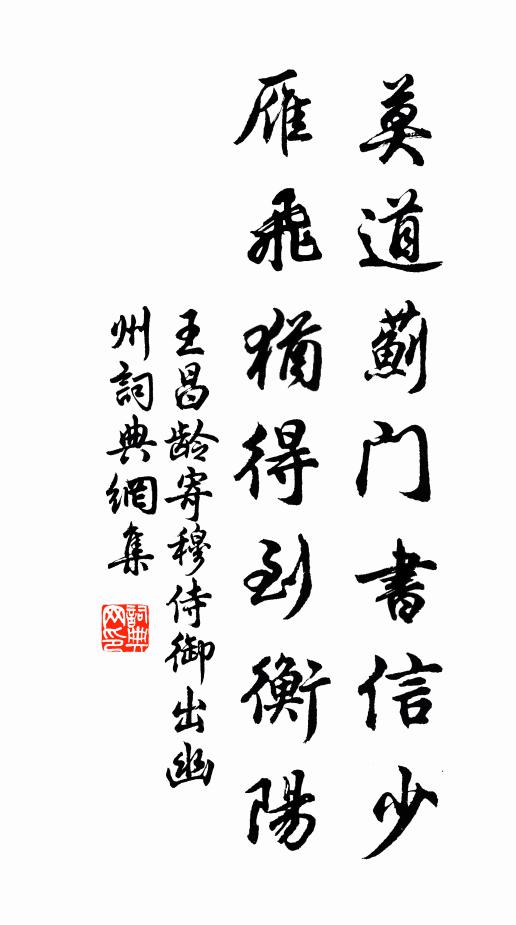 莫道蓟门書信少
雁飛猶得到衡陽
王昌龄寄穆侍御出幽
州詞典網集
詞典
网印